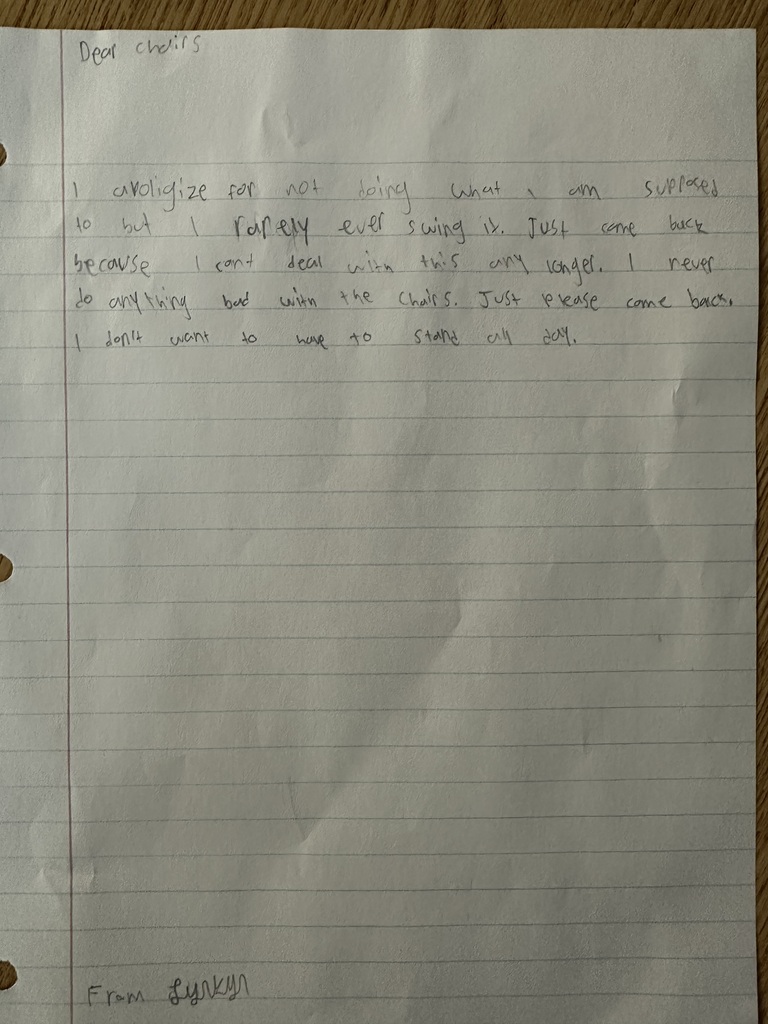 Dear chairs
I apoligize for not doing what i am supposed
to but I rarely ever swing it. Just come back
because I cant deal with this any longer. I never
do anything bad with the chairs. Just please come back.
I don't want to have to stand all day.
From